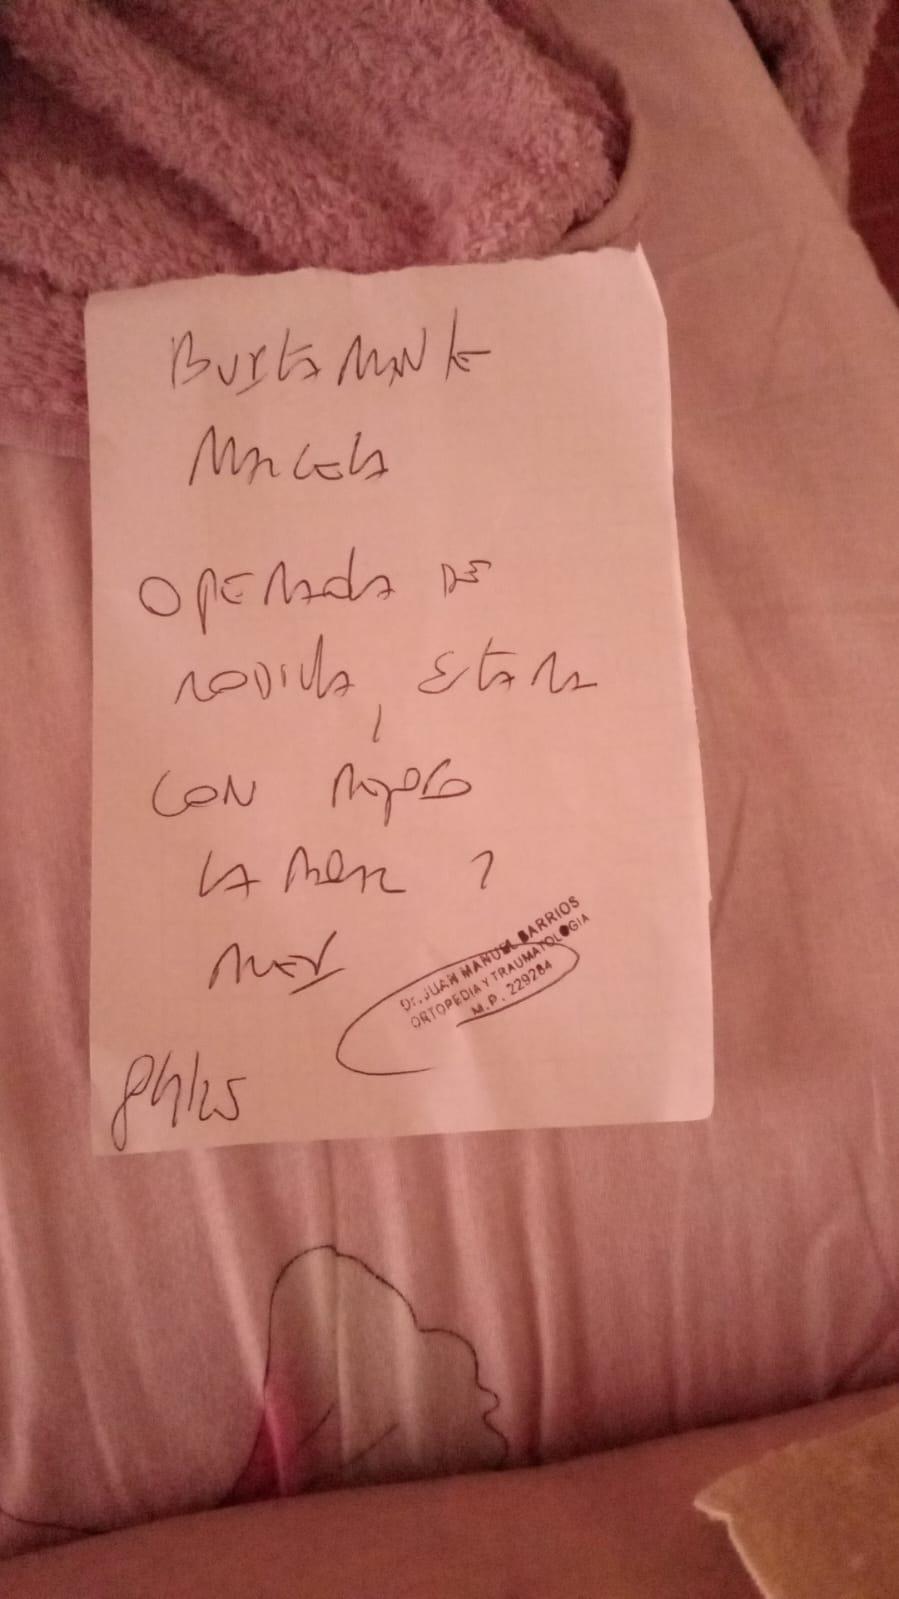 Bustamante
Marcela
Operada de
rodilla, estara
con reposo
laboral 1
mes
8/4/25
Dr. JUAN MANUEL BARRIOS
ORTOPEDIA Y TRAUMATOLOGIA
M.P. 229284